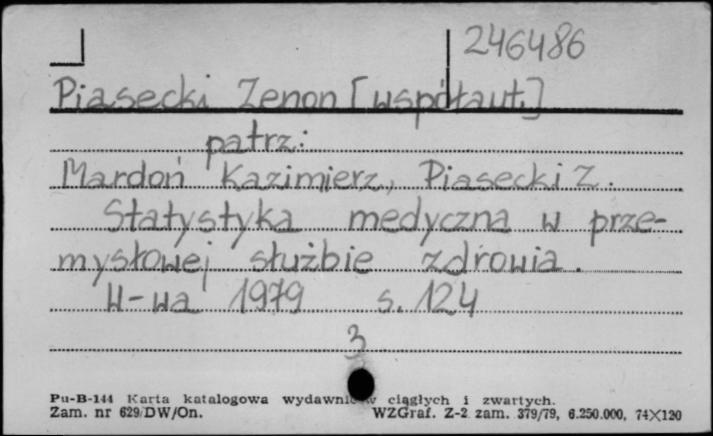 246486
Piasecki Zenon [współaut.]
patrz:
Mardoń Kazimierz, Piasecki Z.
Statystyka medyczna w prze-
mysłowej służbie zdrowia.
W-wa 1979 s. 124
3
Pu-B-144 Karta katalogowa wydawnictw ciągłych i zwartych.
Zam. nr 629/DW/On. WZGraf. Z-2 zam. 379/79, 6.250.000, 74×120